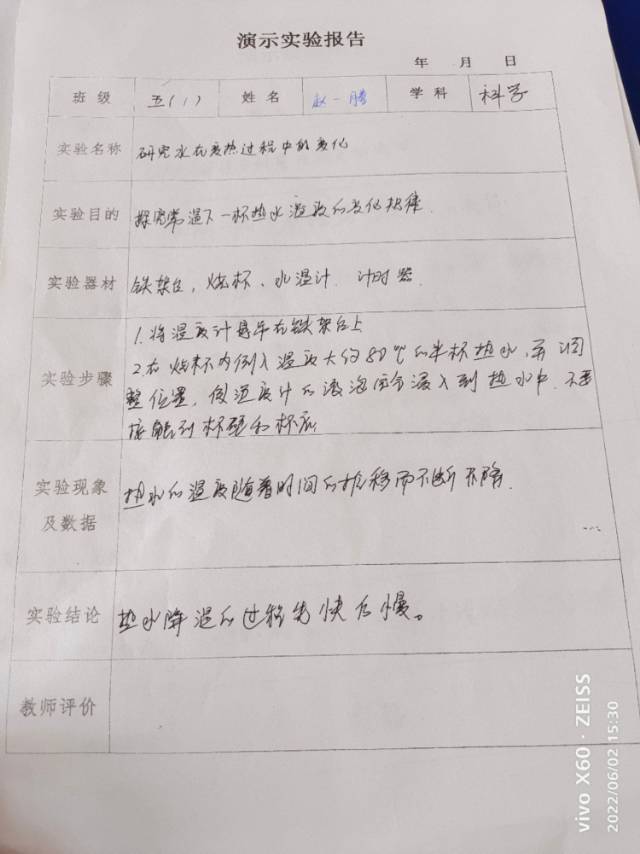 演示实验报告
年 月 日
班级 五(1) 姓名 赵一腾 学科 科学
实验名称 研究水在变热过程中的变化
实验目的 探究常温下一杯热水温度的变化规律.
实验器材 铁架台, 烧杯、水温计. 计时器.
1. 将温度计悬吊在铁架台上
2. 在烧杯内倒入温度大约80℃的半杯热水, 并调
实验步骤
整位置, 使温度计的液泡完全浸入到热水中. 不要
接触到杯壁和杯底
实验现象
及数据
热水的温度随着时间的推移而不断下降.
实验结论 热水降温的过程先快后慢。
教师评价
vivo X60 · ZEISS
2022/06/02 15:30